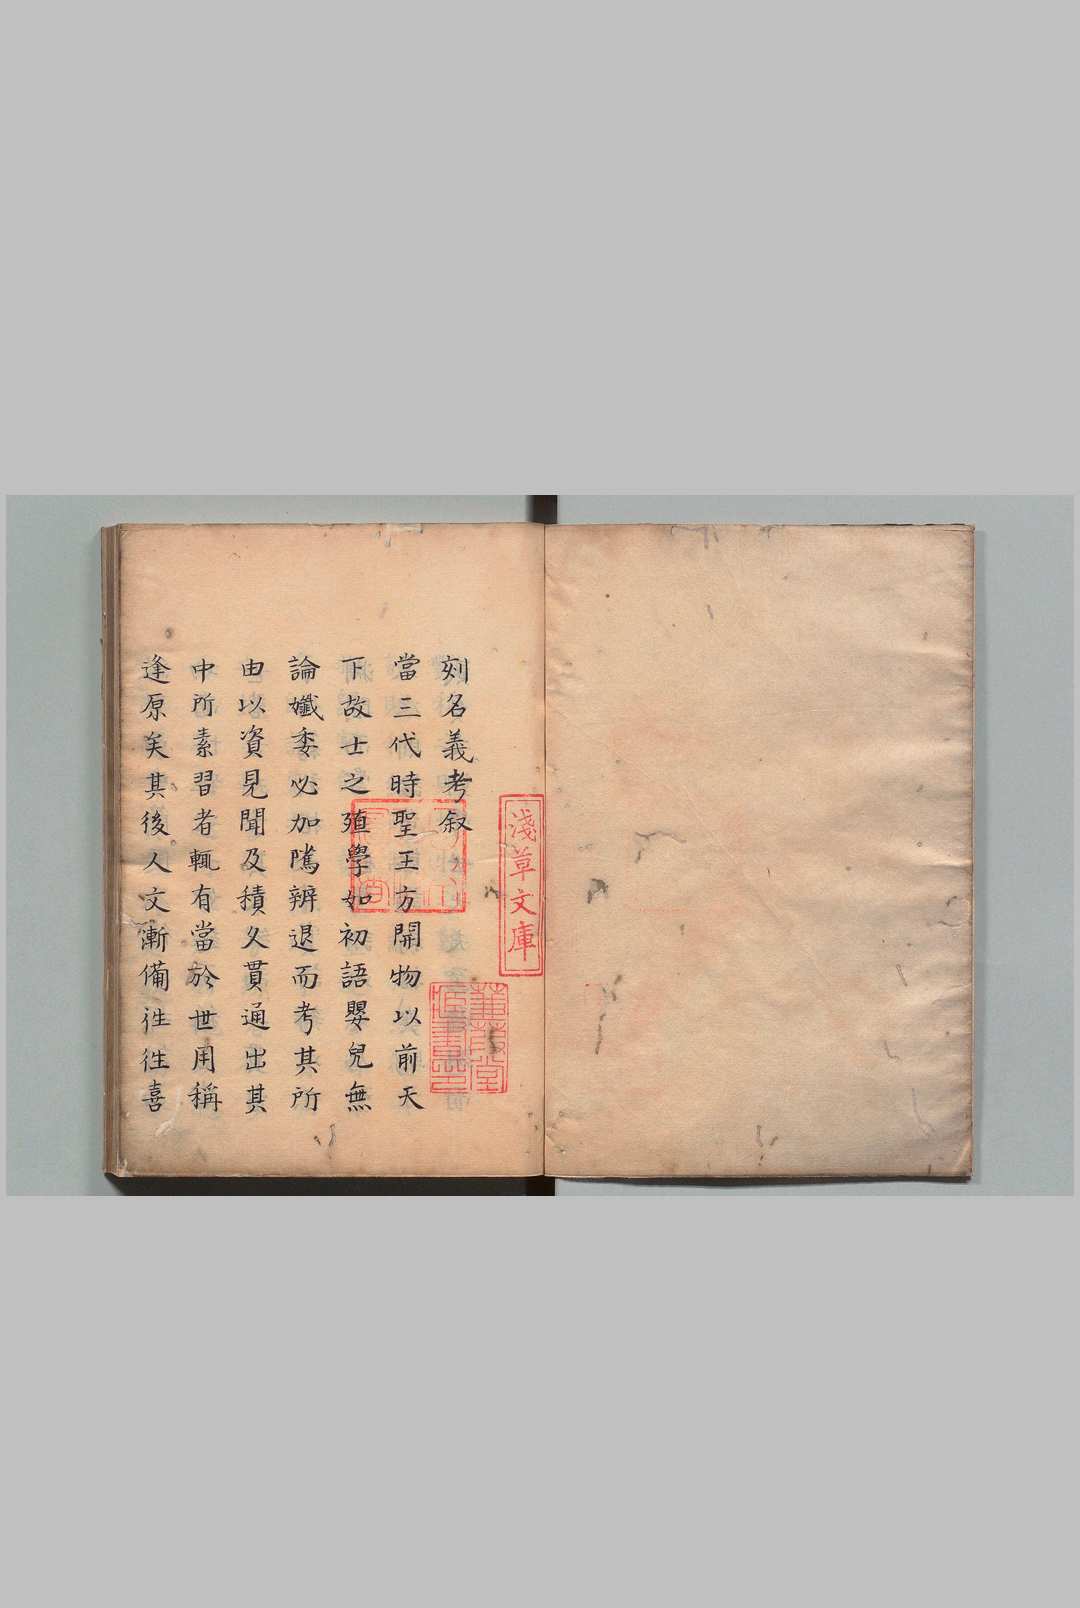 刻名義考叙
當三代時聖王方開物以前天
下故士之殖學如初語嬰兒無
論孅委必加隲辨退而考其所
由以資見聞及積久貫通出其
中所素習者輒有當於世用稱
逢原矣其後人文漸備徃徃喜
淺草文庫
蒹葭堂
藏書印